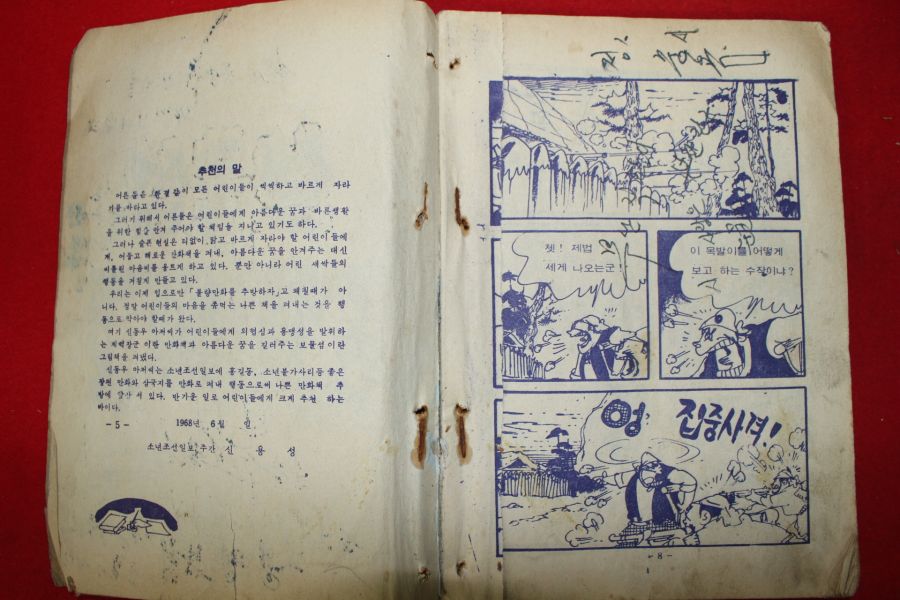 추천의 말
어른들은 한결같이 모든 어린이들이 씩씩하고 바르게 자라
기를 바라고 있다.
그러기 위해서 어른들은 어린이들에게 아름다운 꿈과 바른생활
을 위한 힘을 안겨 주어야 할 책임을 지니고 있기도 하다.
그러나 슬픈 현실은 티없이 맑고 바르게 자라야 할 어린이들에
게, 어둡고 해로운 만화책을 펴내, 아름다운 꿈을 안겨주는 대신
비뚤린 마음씨를 움트게 하고 있다. 뿐만 아니라 어린 새싹들의
행동을 거칠게 만들고 있다.
우리는 이제 입으로만 「불량만화를 추방하자」고 외칠때가 아
니다. 정말 어린이들의 마음을 좀먹는 나쁜 책을 펴내는 것을 행
동으로 막아야 할때가 왔다.
여기 신동우 아저씨가 어린이들에게 의협심과 용맹성을 발휘하
는 차력장군 이란 만화책과 아름다운 꿈을 길러주는 보물섬이란
그림책을 펴냈다.
신동우 아저씨는 소년조선일보에 홍길동, 소년불가사리등 좋은
장편 만화와 삼국지를 만화로 펴내 행동으로써 나쁜 만화책 추
방에 앞장 서 있다. 반가운 일로 어린이들에게 크게 추천 하는
바이다.
1968년 6월 일
소년조선일보 주간 신 용 성
- 5 -
쳇! 제법
세게 나오는군
이 목발이를 어떻게
보고 하는 수작이냐?
영 집중사격!
- 8 -